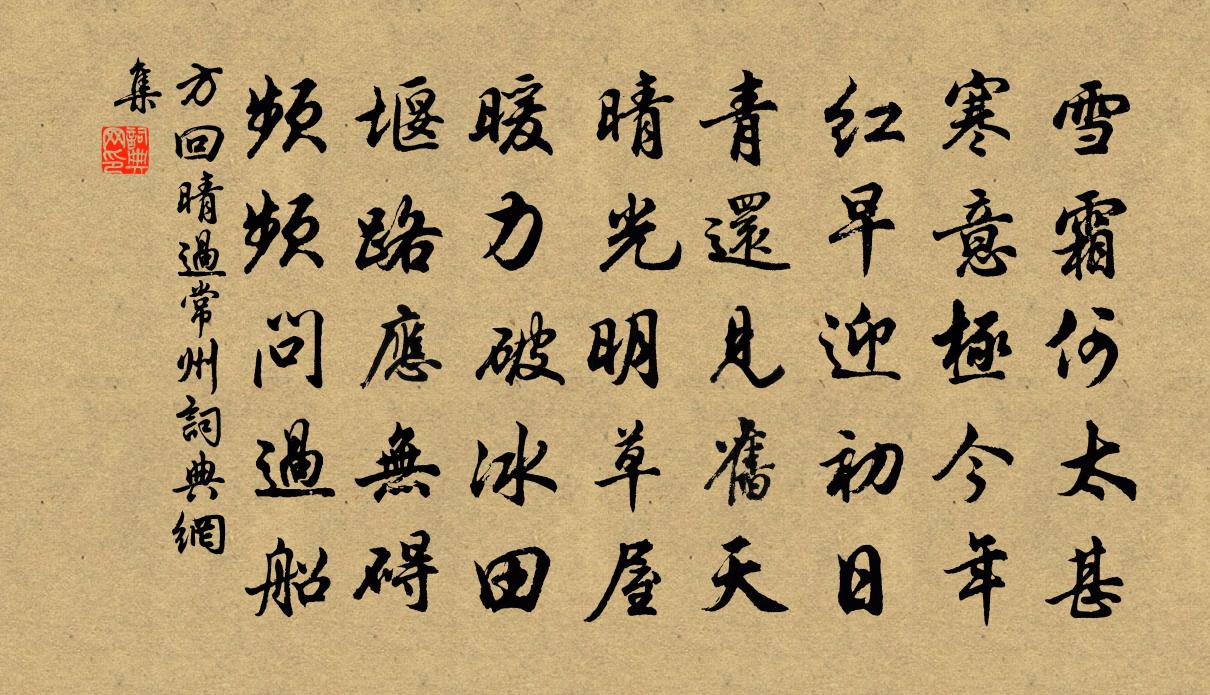 雪霜何太甚
寒意極今年
红早迎初日
青還見舊天
晴光明草屋
暖力破冰田
堰路應無碍
頻頻問過船
方回晴過常州詞典網
集
詞典
网印